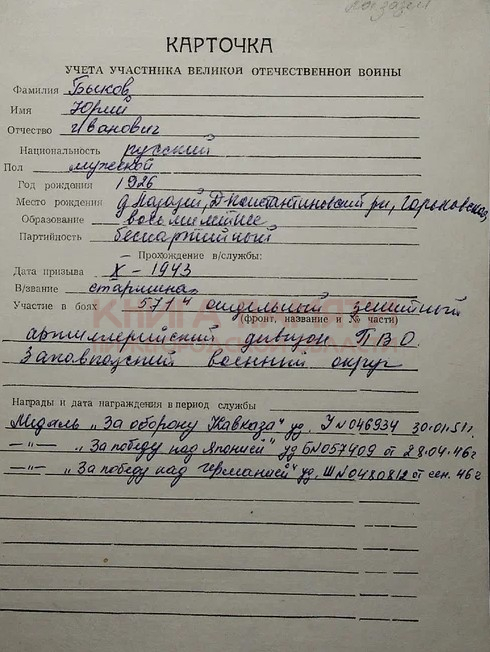 КАРТОЧКА
УЧЕТА УЧАСТНИКА ВЕЛИКОЙ ОТЕЧЕСТВЕННОЙ ВОЙНЫ
Фамилия Быков
Имя Юрий
Отчество Иванович
Национальность русский
Пол мужской
Год рождения 1926
Место рождения д. Д-Константиновский рн, Горьковская
Образование восьмилетнее
Партийность беспартийный
— Прохождение в/службы:
Дата призыва X - 1943
В/звание старшина
Участие в боях 571й отдельный зенитный
(фронт, название и № части)
артиллерийский дивизон ПВО
военный округ
КНИГА ПАМЯТИ
НИЖЕГОРОДСКОЙ ОБЛАСТИ
Награды и дата награждения в период службы
Медаль „За оборону Кавказа" уд. У №046934 30.01.51г.
—"— „За победу над Японией" уд Б№057409 от 28.04.46г
—"— „За победу над Германией" уд. Ш№0480812 от сен. 46г